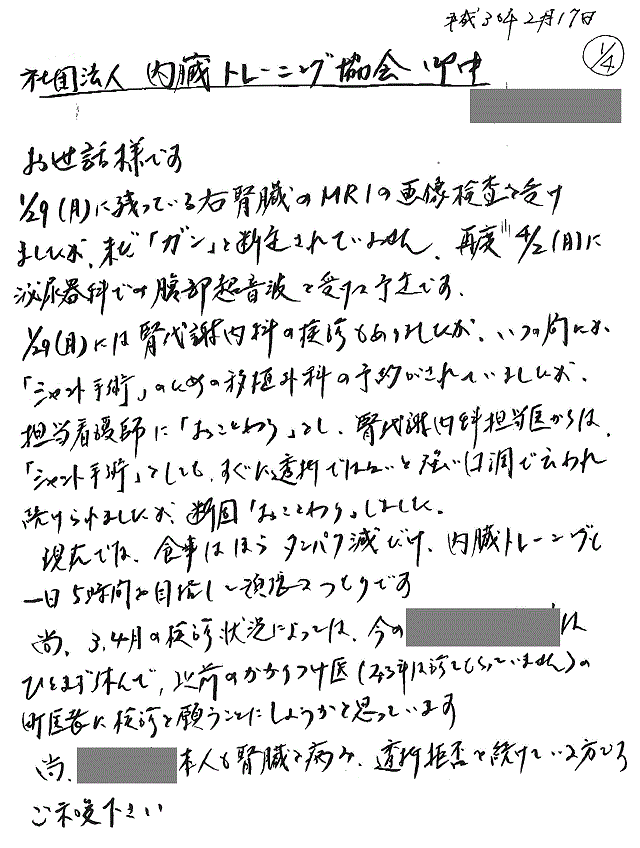 平成30年2月17日
1/4
社団法人 内臓トレーニング協会 御中
お世話様です
1/29(月)に残っている右腎臓のMRIの画像検査を受け
ましたが、未だ「ガン」と断定されていません、再度 4/2(月)に
泌尿器科での腹部超音波を受ける予定です.
1/29(月)には腎代謝内科の検診もありましたが、いつの間にか、
「シャント手術」のための移植外科の予約がされていましたが、
担当看護師に「おことわり」をし、腎代謝内科担当医からは、
「シャント手術」をしても、すぐに透析ではないと強い口調で云われ
続けられましたが、断固「おことわり」しました.
現在では、食事はほぼタンパク減だけ、内臓トレーニングも
一日5時間を目指して頑張るつもりです
尚、3,4月の検診状況によっては、今の は
ひとまず休んで、以前のかかりつけ医(2,3年は診てもらっていません)の
町医者に検診を願うことにしようかと思っています
尚、 本人も腎臓を病み、透析拒否を続けている方です
ご示唆下さい